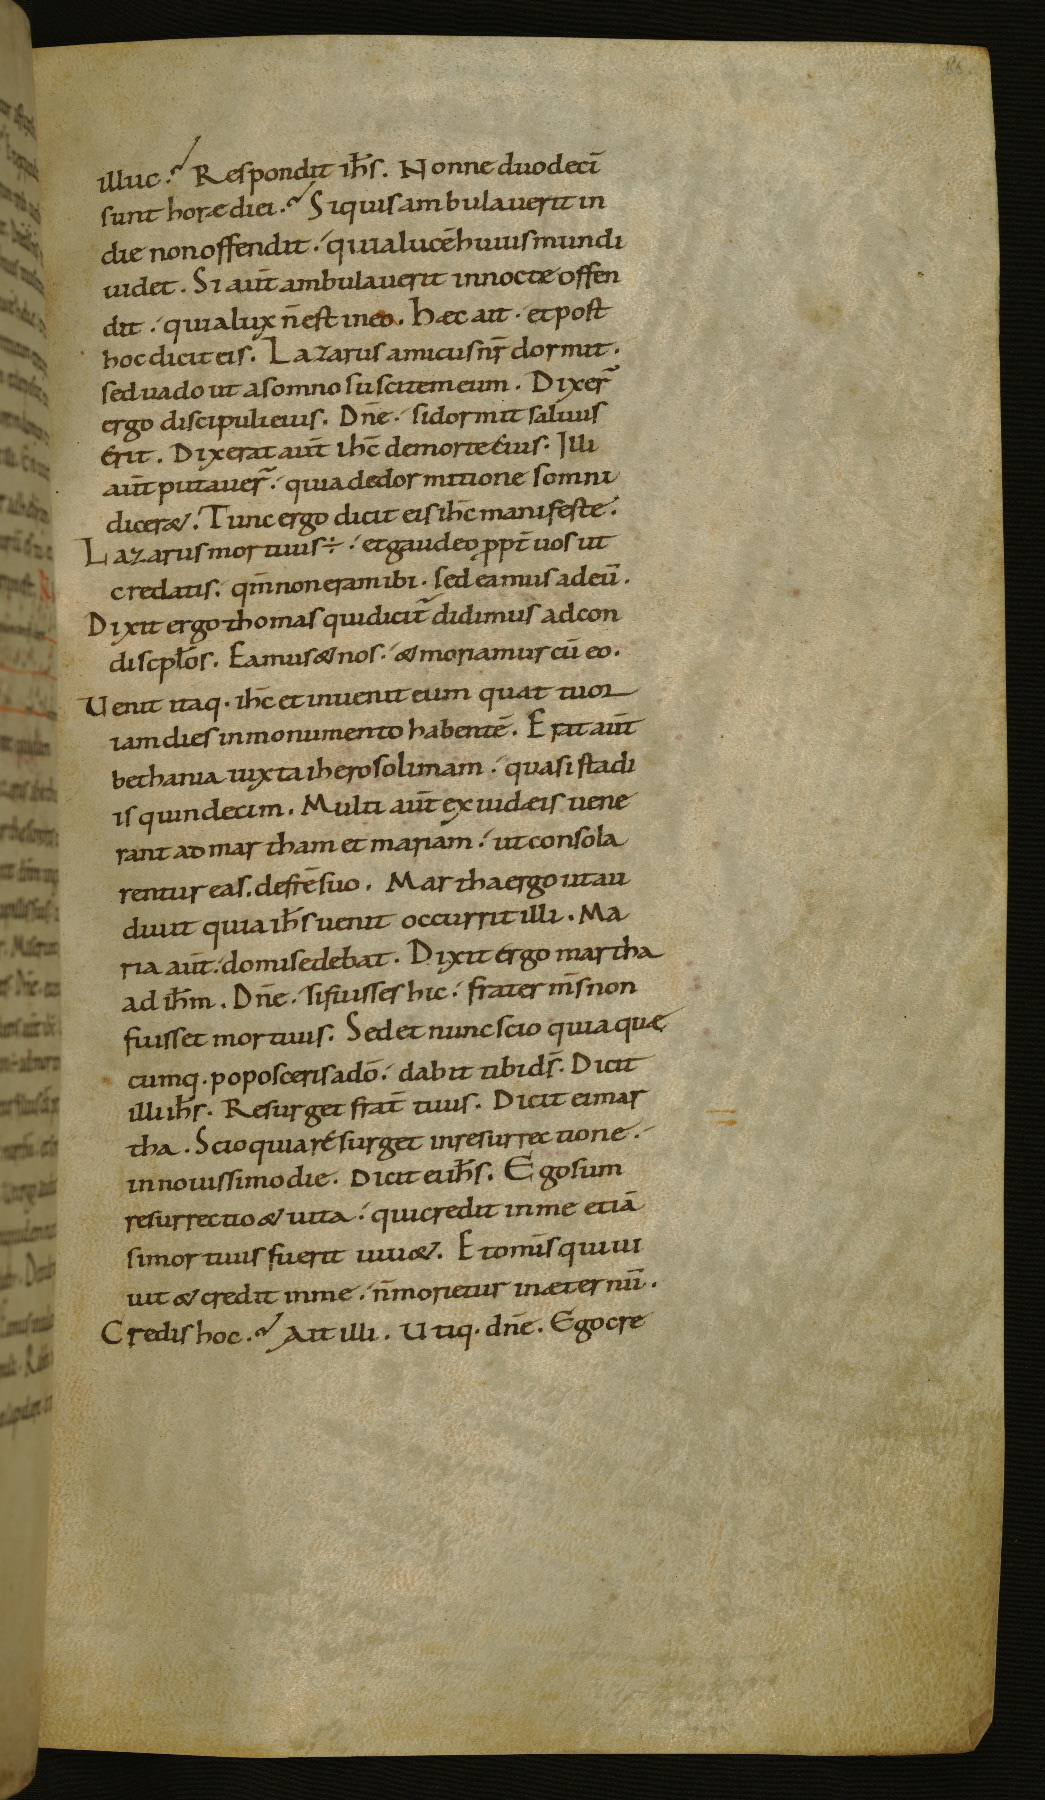 illuc. Respondit ih̄s. Nonne duodecī
sunt horæ diei. Si quis ambulauerit in
die non offendit. quia lucē huius mundi
uidet. Si aut̄ ambulauerit in nocte offen
dit. quia lux n̄ est in eo. Hæc ait. et post
hoc dicit eis. Lazarus amicus nr̄ dormit.
sed uado ut a somno suscitem eum. Dixer̄
ergo discipuli eius. Dn̄e. si dormit saluus
erit. Dixerat aut̄ ihc̄ de morte eius. Illi
aut̄ putauer̄. quia de dormitione somni
diceret. Tunc ergo dicit eis ihc̄ manifeste.
Lazarus mortuus ÷. et gaudeo ppt̄ uos ut
credatis. qm̄ non eram ibi. sed eamus ad eū.
Dixit ergo thomas qui dicit̄ didimus ad con
discpl̄os. Eamus & nos. & moriamur cū eo.
Uenit itaq. ihc̄ et inuenit eum quattuor
iam dies in monumento habentē. Erat aut̄
bethania iuxta iherosolimam. quasi stadi
is quindecim. Multi aut̄ ex iudæis uene
rant ad martham et mariam. ut consola
rentur eas. de fr̄e suo. Martha ergo ut au
diuit quia ih̄s uenit occurrit illi. Ma
ria aut̄. domi sedebat. Dixit ergo martha
ad ih̄m. Dn̄e. si fuisses hic. frater ms̄ non
fuisset mortuus. Sed et nunc scio quia quæ
cumq. poposceris a dō. dabit tibi ds̄. Dicit
illi ih̄s. Resurget frat̄ tuus. Dicit ei mar
tha. Scio quia resurget in resurrectione.
in nouissimo die. Dicit ei ih̄s. Ego sum
resurrectio & uita. qui credit in me etiā
si mortuus fuerit uiu&. Et omīs qui ui
uit & credit in me. n̄ morietur in æternū.
Credis hoc. Ait illi. Utiq. dn̄e. Ego cre